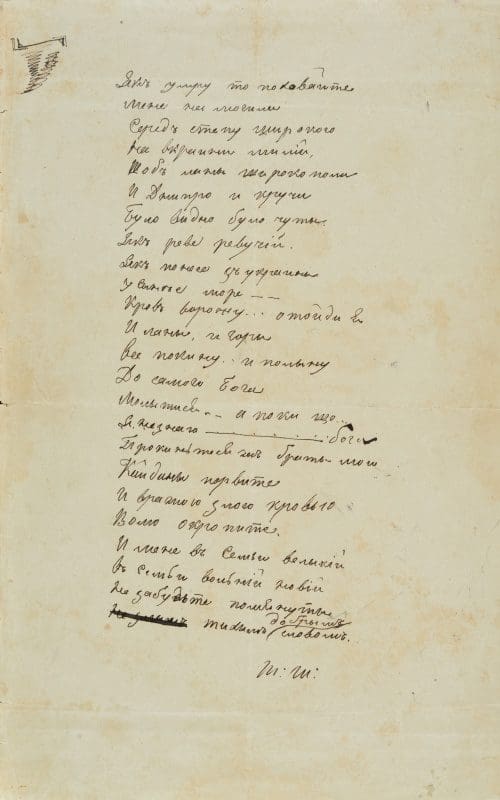 Якъ умру то поховайте
Мене на могили
Середъ степу широкого
На вкраини милій,
Щобъ ланы широкополи
И Днипро и кручи
Було видно було чуты.
Якъ реве ревучій.
Якъ понесе зъ украины
У синье море --
Кровъ ворожу... отойди я
И ланы, и горы
Все покину.. и полыну
До самого Бога
Молытися.. а поки що..
Я незнаю бога
брать мою
Кайданы порвите
И вражою злою кровью
Волю окропите.
И мене въ семьи велыкій
въ семьи вольній новій
Не забудьте помянуты
тихымъ добрымъ словомъ.
Ш: Ш: